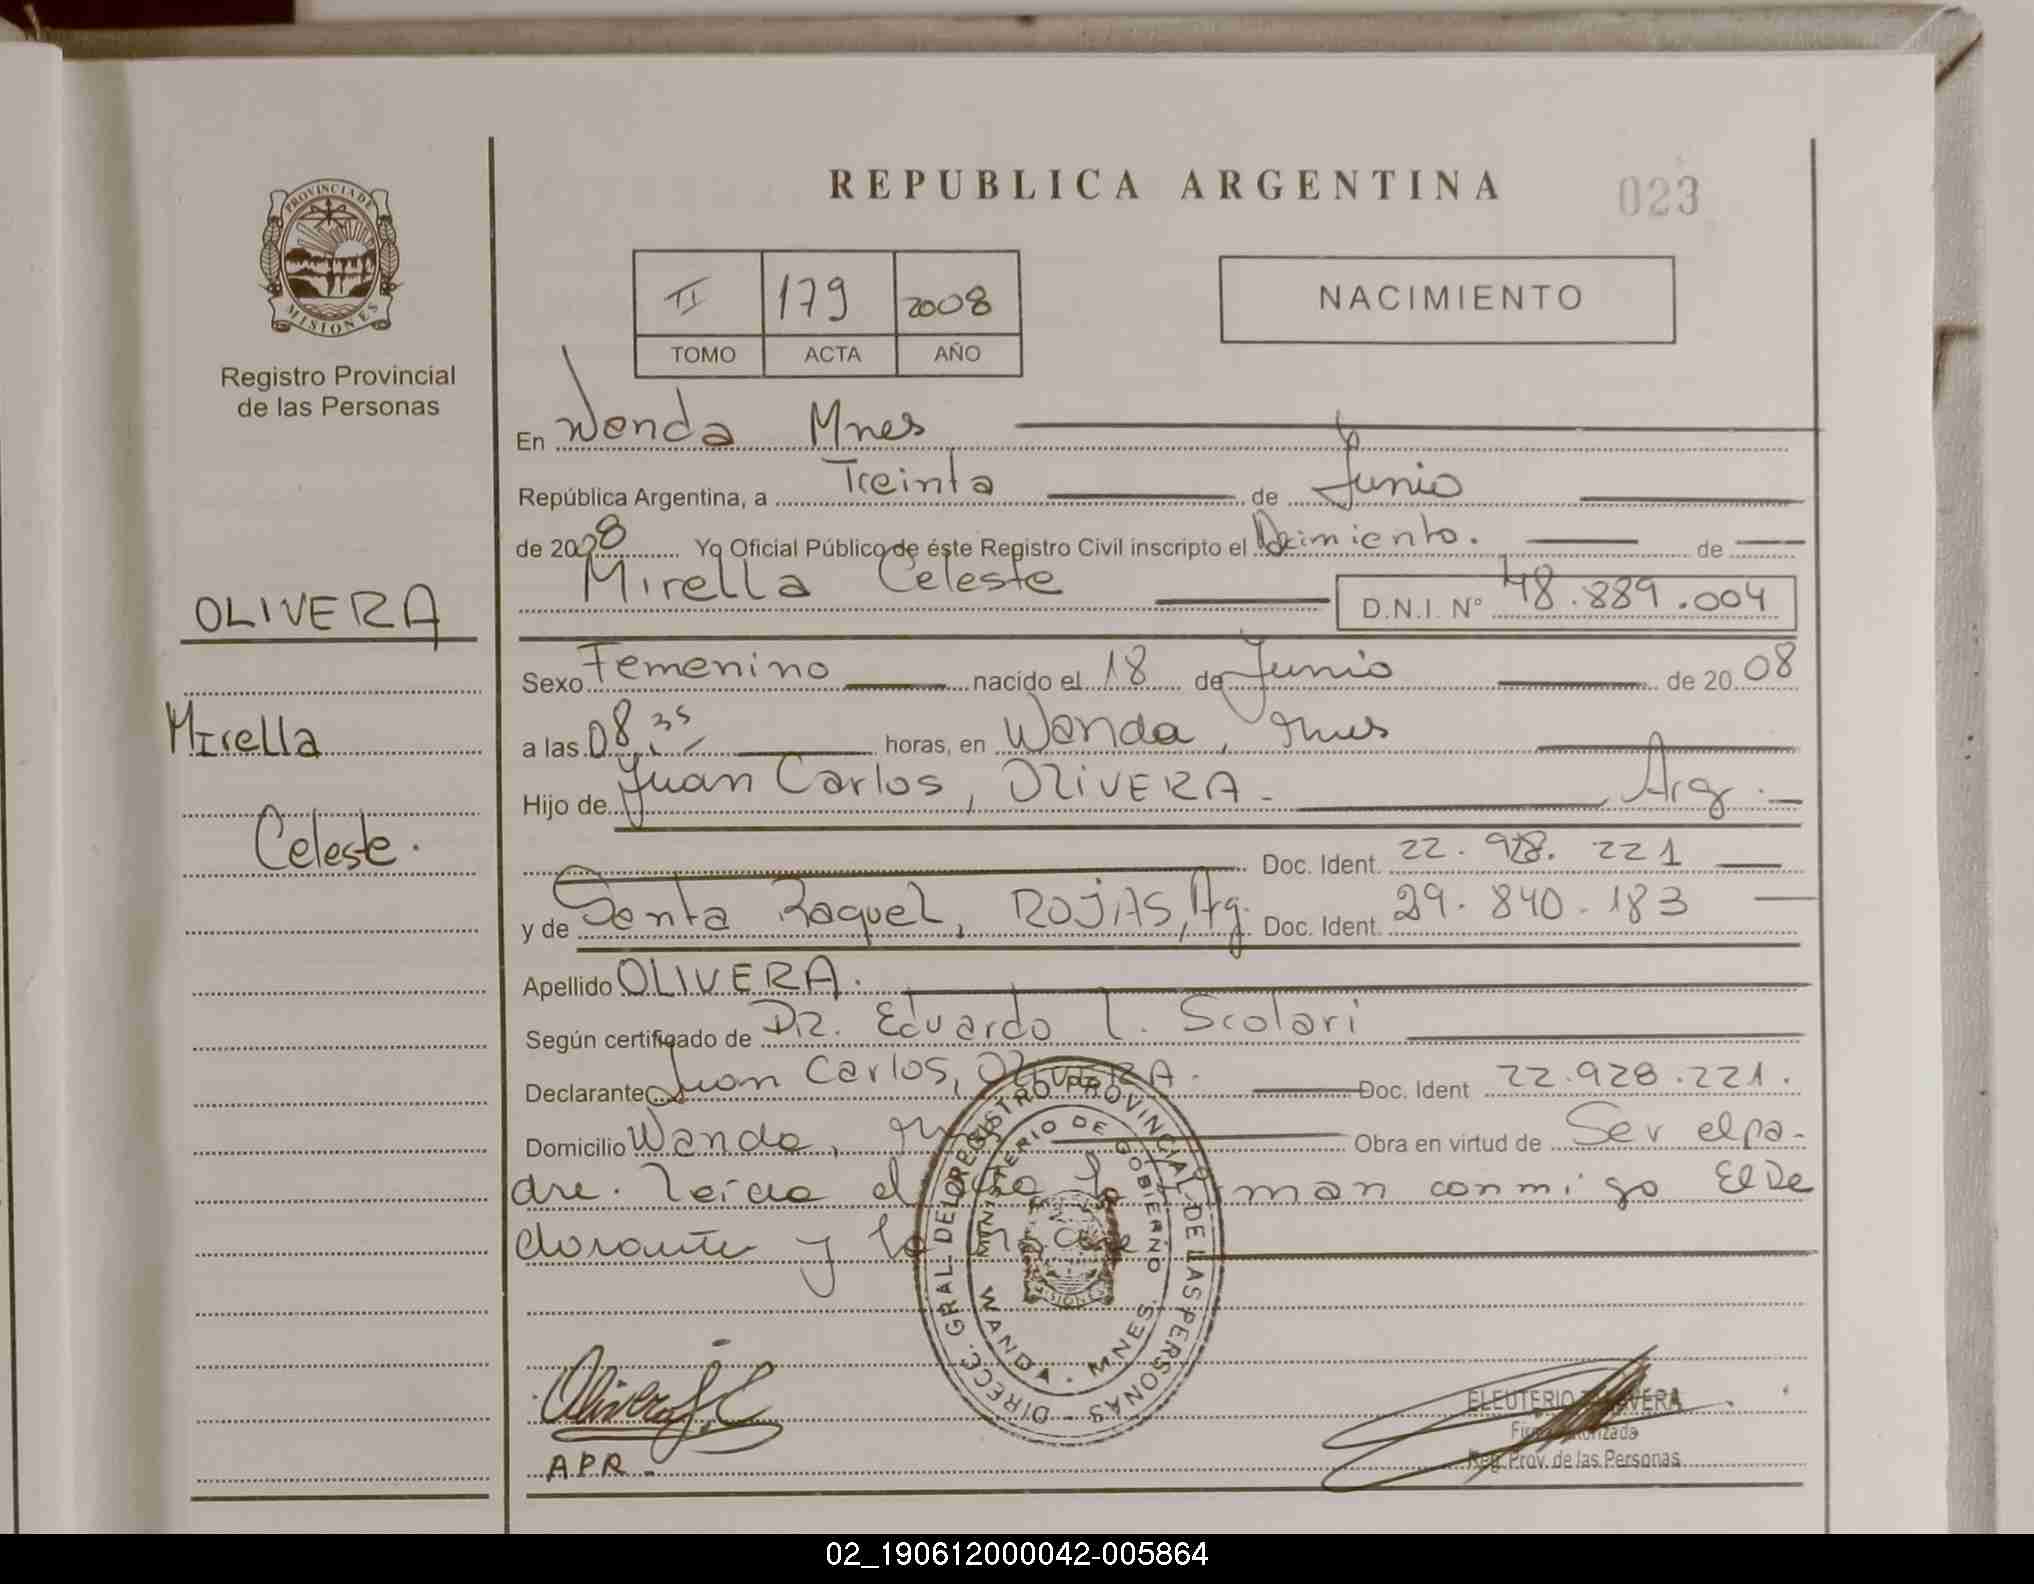 REPUBLICA ARGENTINA
023
PROVINCIA DE
MISIONES
Registro Provincial
de las Personas
II 179 2008
TOMO ACTA AÑO
NACIMIENTO
OLIVERA
Mirella
Celeste.
En Wanda Mnes
República Argentina, a Treinta de Junio
de 2008 Yo Oficial Público de éste Registro Civil inscripto el Nacimiento. de
Mirella Celeste D.N.I. N° 48.889.004
Sexo Femenino nacido el 18 de Junio de 20 08
a las 08:35 horas, en Wanda, Mnes
Hijo de Juan Carlos, OLIVERA - Arg.
Doc. Ident. 22.928.221
y de Santa Raquel, ROJAS, Arg. Doc. Ident. 29.840.183
Apellido OLIVERA.
Según certificado de DR. Eduardo L. Scolari
Declarante Juan Carlos, OLIVERA. Doc. Ident 22.928.221.
Domicilio Wanda, Mnes Obra en virtud de Ser el pa-
dre. Leída el acta la firman conmigo El De
clarante y la madre
DIRECC. GRAL. DEL REGISTRO PROVINCIAL DE LAS PERSONAS
MINISTERIO DE GOBIERNO
WANDA - MNES.
MISIONES
Olivera J.C
APR.
ELEUTERIO
Firma Autorizada
Reg. Prov. de las Personas
02_190612000042-005864